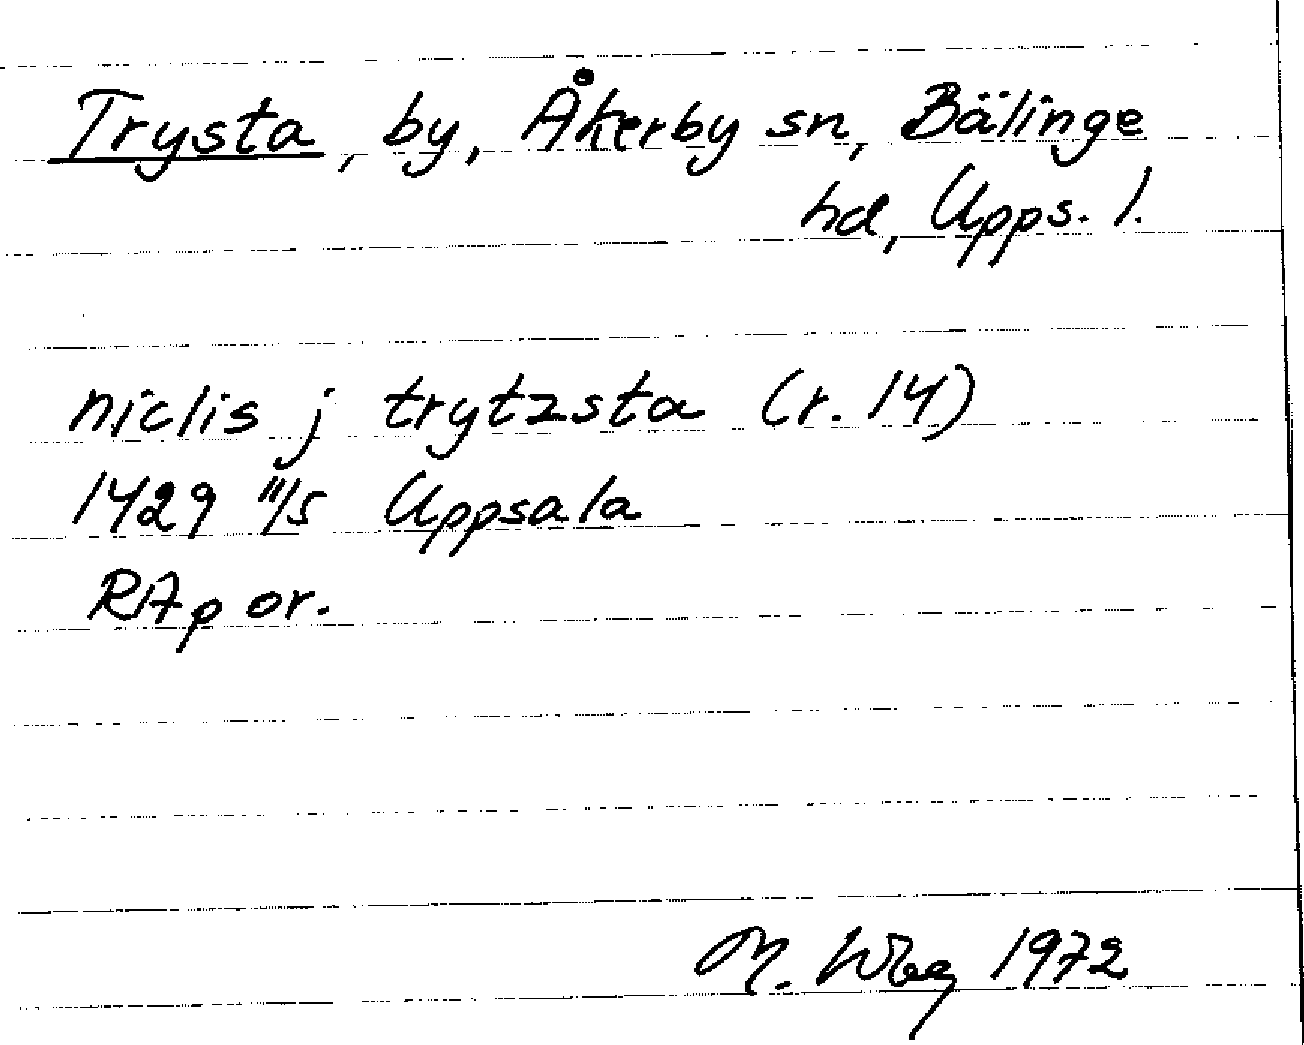 Trysta, by, Åkerby sn, Bälinge
hd, Upps. l.
niclis j trytzsta (r. 14)
1429 11/5 Uppsala
RAp or.
M. Wbg 1972